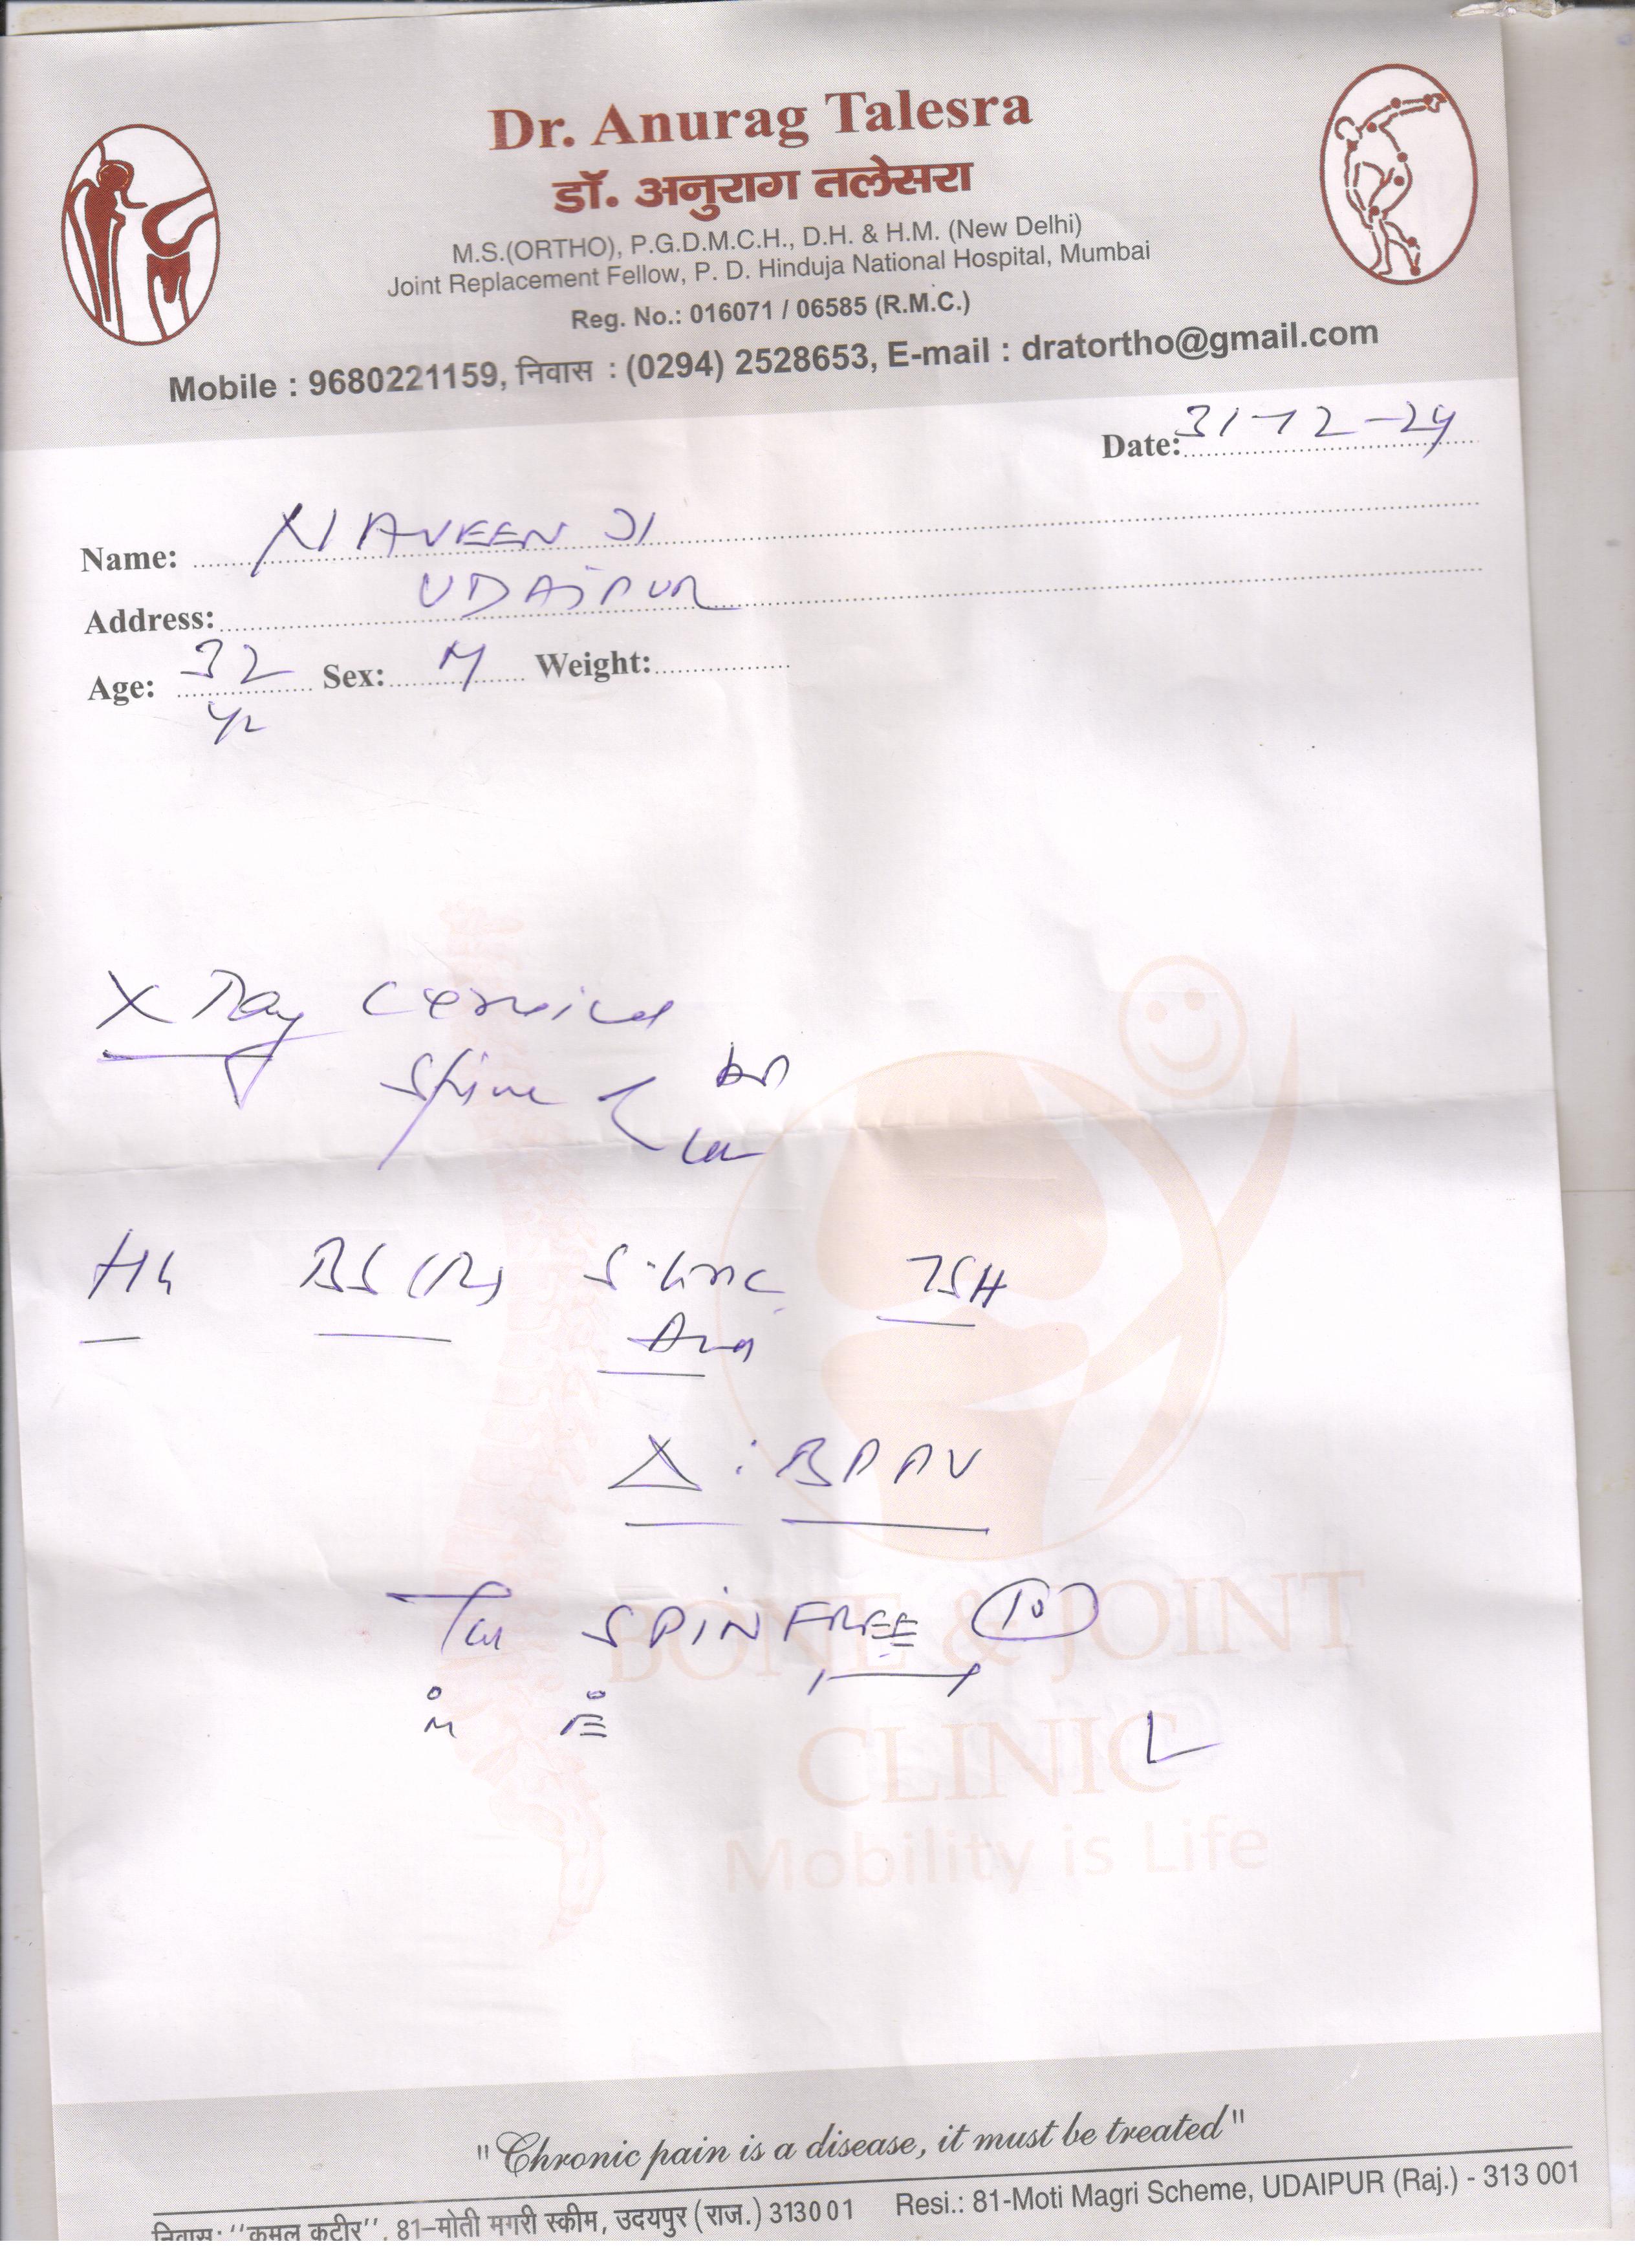 Dr. Anurag Talesra
डॉ. अनुराग तलेसरा
M.S.(ORTHO), P.G.D.M.C.H., D.H. & H.M. (New Delhi)
Joint Replacement Fellow, P. D. Hinduja National Hospital, Mumbai
Reg. No.: 016071 / 06585 (R.M.C.)
Mobile : 9680221159, निवास : (0294) 2528653, E-mail : dratortho@gmail.com
Date: 31-12-24
Name: NAVEEN JI
Address: UDAIPUR
Age: 32 Sex: M Weight:
yr
X Ray Cervical
Spine
BS (R) S. Uric TSH
Acid
Δ : BPPV
Tab SPINFREE 10
M E
BONE & JOINT
CLINIC
Mobility is Life
"Chronic pain is a disease, it must be treated"
निवास: ''कमल कुटीर'', 81–मोती मगरी स्कीम, उदयपुर (राज.) 313001 Resi.: 81-Moti Magri Scheme, UDAIPUR (Raj.) - 313 001